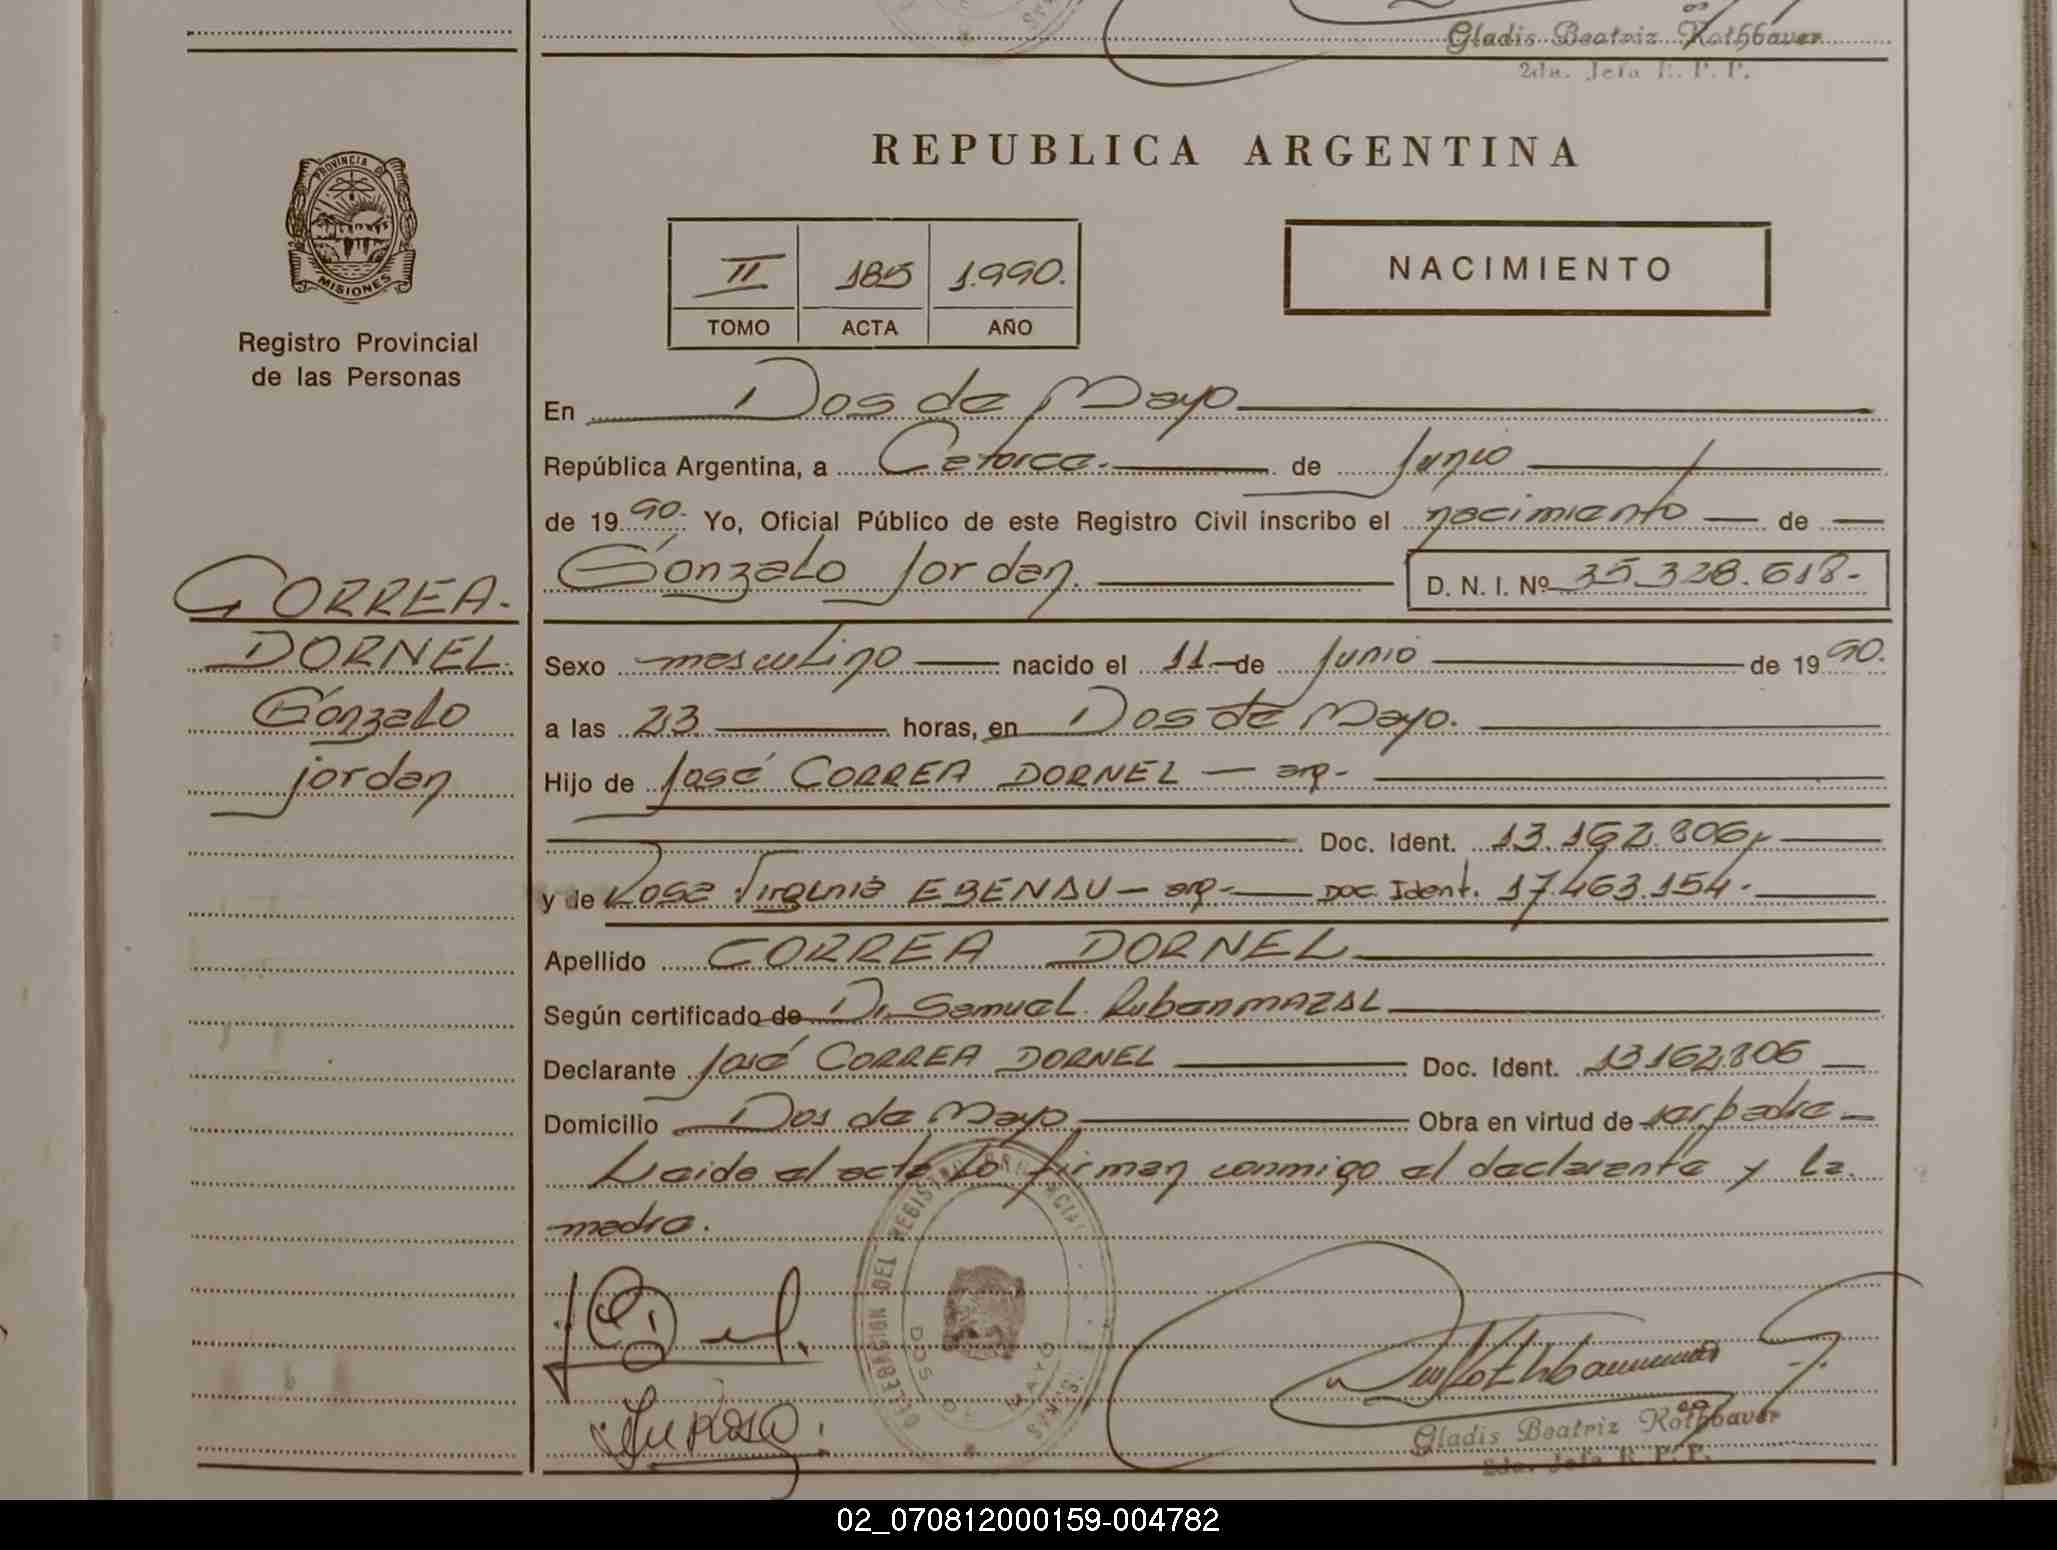 Gladis Beatriz Rothbauer
2da. Jefa R. P. P.
REPUBLICA ARGENTINA
PROVINCIA DE
MISIONES
Registro Provincial
de las Personas
II 185 1.990.
TOMO ACTA AÑO
NACIMIENTO
En Dos de Mayo
República Argentina, a Catorce. de Junio
de 19 90. Yo, Oficial Público de este Registro Civil inscribo el nacimiento de
Gonzalo Jordan. D. N. I. Nº 35.328.618.-
CORREA.
DORNEL
Gonzalo
Jordan
Sexo masculino nacido el 11 de Junio de 19 90.
a las 23. horas, en Dos de Mayo.
Hijo de José CORREA DORNEL - arg-
Doc. Ident. 13.162.806,
y de Rosa Virginia EBENAU - arg- Doc. Ident. 17.463.154.
Apellido CORREA DORNEL
Según certificado de Dr. Samuel Ruben MAZAL
Declarante José CORREA DORNEL Doc. Ident. 13162.806
Domicilio Dos de Mayo Obra en virtud de ser padre
Leida el acta lo firman conmigo el declarante y la
madre.
DELEGACION DEL REGISTRO PROVINCIAL
DOS DE MAYO
Gladis Beatriz Rothbauer
2da. Jefa R. P. P.
02_070812000159-004782